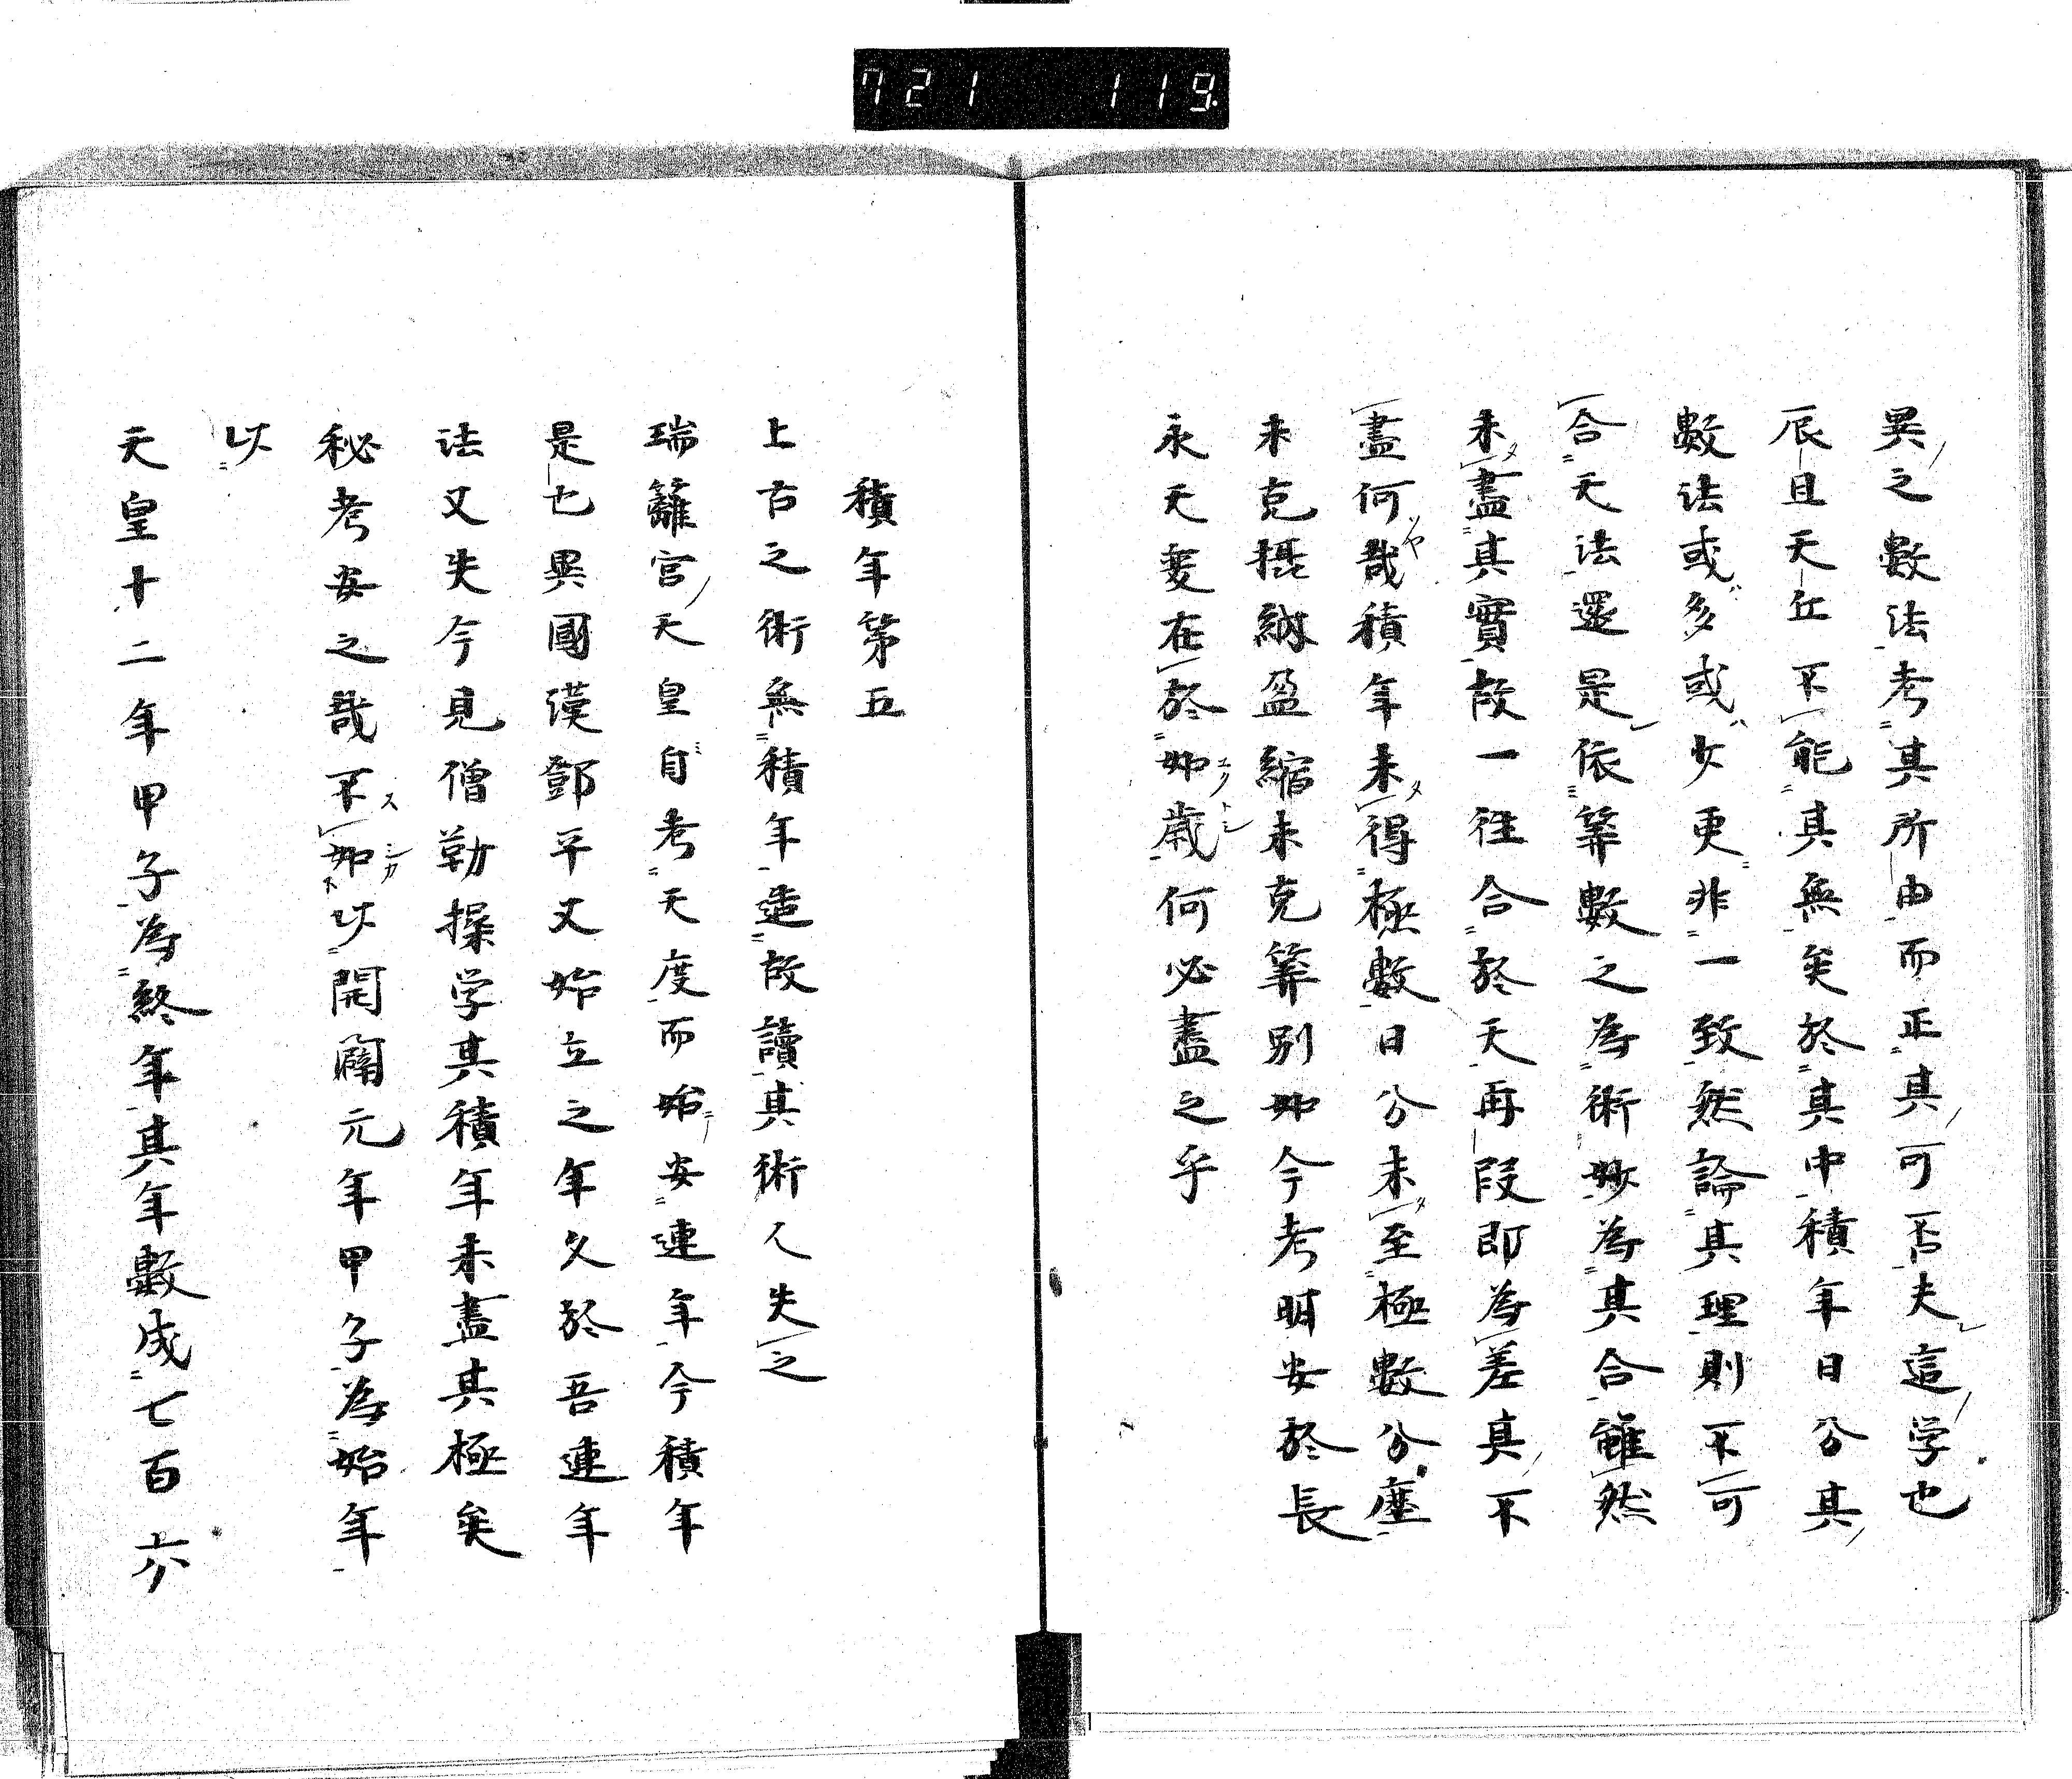 721 119.
異之數法考其所由而正其可否夫這学也
辰且天丘不能其無矣於其中積年日分其
數法或多或少更非一致然論其理則不可
合天法還是依筭數之為術妙為其合雖然
未盡其實故一往合於天再段即為差真不
盡何哉積年未得極數日分未至極數分塵
未克摂納盈縮未克筭別如今考明安於長
永天変在於如歳何必盡之乎
積年第五
上古之術無積年造故讀其術人失之
瑞籬宮天皇自考天度而始安連年今積年
是也異國漢鄧平又始立之年久於吾連年
法又失今見僧勒操学其積年未盡其極矣
秘考安之哉不如以開闢元年甲子為始年
以
天皇十二年甲子為終年其年數成七百六